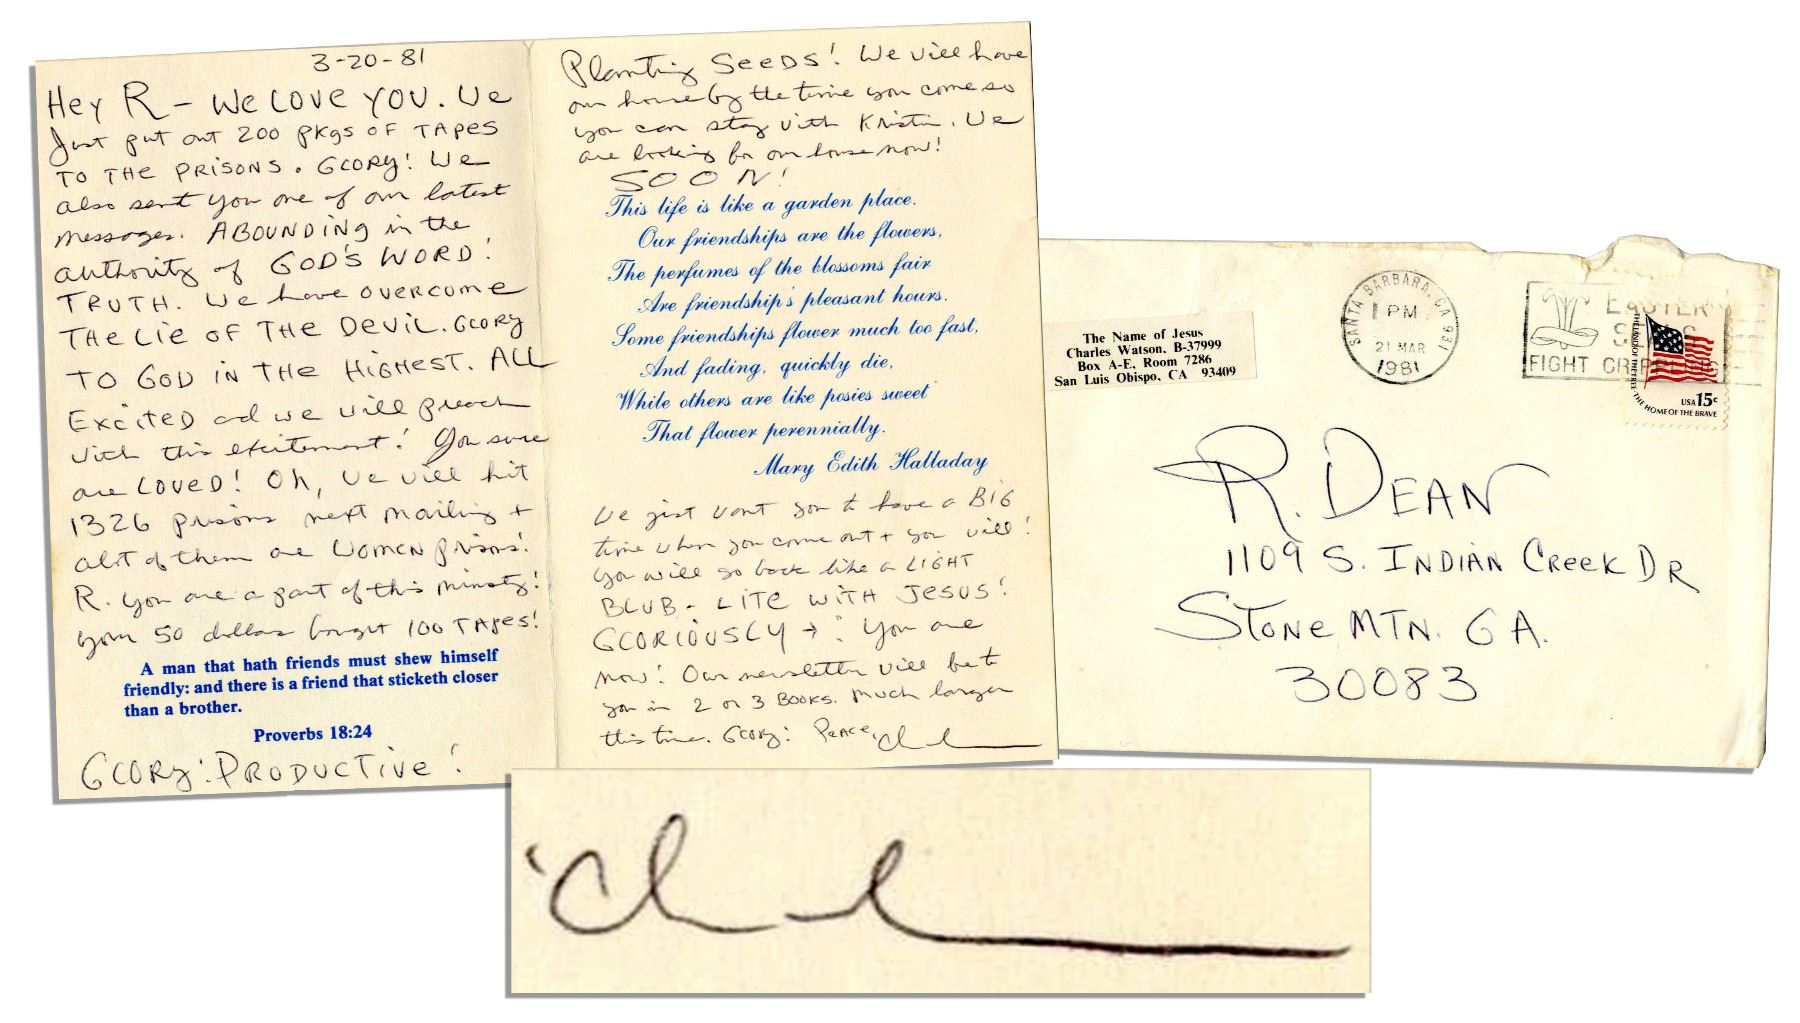 3-20-81
Hey R - We LOVE YOU. We
Just put out 200 pkgs OF TAPES
TO THE PRISONS. GLORY! We
also sent you one of our latest
messages. ABOUNDING in the
authority of GOD'S WORD!
TRUTH. We have OVERCOME
THE LIE OF THE DEVIL. GLORY
TO GOD IN THE HIGHEST. ALL
EXCITED ad we will preach
with this excitement! You sure
are LOVED! Oh, we will hit
1326 prisons next mailing +
alot of them are WOMEN prisons!
R. you are a part of this ministy!
your 50 dollars bought 100 TAPES!
A man that hath friends must shew himself
friendly: and there is a friend that sticketh closer
than a brother.
Proverbs 18:24
GLORY! PRODUCTIVE!
Planting SEEDS! We will have
our house by the time you come so
you can stay with Kristin. We
are looking for our house now!
SOON!
This life is like a garden place.
Our friendships are the flowers,
The perfumes of the blossoms fair
Are friendship's pleasant hours.
Some friendships flower much too fast,
And fading, quickly die,
While others are like posies sweet
That flower perennially.
Mary Edith Halladay
We just want you to have a BIG
time when you come out + you will!
You will go back like a LIGHT
BLUB - LITE WITH JESUS!
GLORIOUSLY → ! You are
now! Our newsletter will be to
you in 2 or 3 BOOKS. Much larger
this time. Glory! Peace,
The Name of Jesus
Charles Watson, B-37999
Box A-E, Room 7286
San Luis Obispo, CA 93409
SANTA BARBARA, CA 931
PM
21 MAR
1981
EASTER
FIGHT
THE LAND OF THE FREE, THE HOME OF THE BRAVE
USA 15c
R. DEAN
1109 S. INDIAN CREEK DR
STONE MTN. GA.
30083